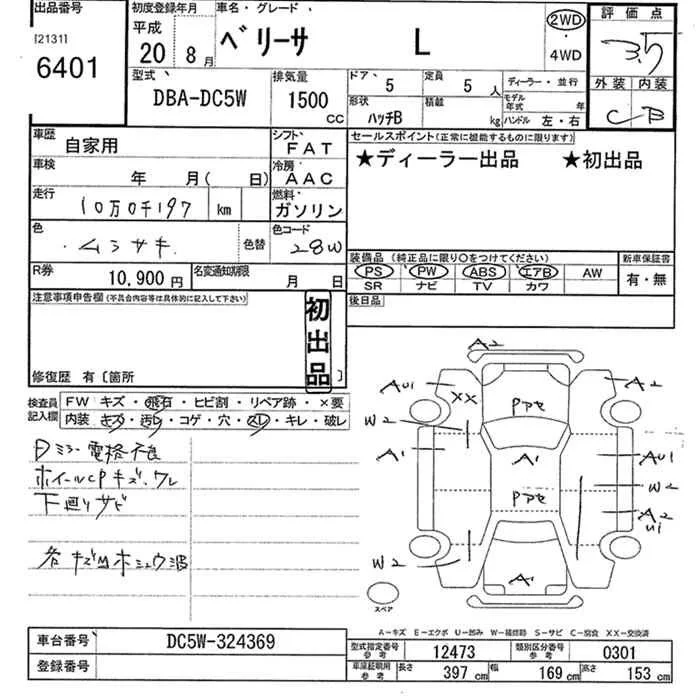 出品番号
[2131]
6401
初度登録年月
平成
20 年 8 月
車名・グレード
ベリーサ L
2WD
・
4WD
評価点
3.5
外装 内装
C B
型式
DBA-DC5W
排気量
1500
cc
ドア
5
定員
5 人
形状
ハッチB
積載
kg
ディーラー・並行
モデル年式 年
ハンドル 左・右
車歴
自家用
シフト
FAT
車検
年 月( 日)
冷房
AAC
走行
10万0千197 km
燃料
ガソリン
色
ムラサキ
色替
色コード
28W
R券
10,900 円
名変通知期限
月 日
セールスポイント(正常に機能するものに限ります)
★ディーラー出品 ★初出品
装備品 (純正品に限り○をつけてください)
新車保証書
PS PW ABS エアB AW
SR ナビ TV カワ
有・無
後日品
注意事項申告欄(不具合内容等は具体的に記入して下さい)
初出品
修復歴 有〔箇所 〕
検査員記入欄
FW キズ・飛石・ヒビ割・リペア跡・×要
内装 キズ・汚レ・コゲ・穴・スレ・キレ・破レ
Dミラー電格不良
ホイールCPキズ、ワレ
下廻りサビ
A2
AU1
XX
A2
W2
Pアセ
A1
A1
AU1
Pアセ
W2
A2
U1
W2
A1
スペア
A-キズ E-エクボ U-凹み W-補修跡 S-サビ C-腐食 XX-交換済
車台番号
DC5W-324369
登録番号
型式指定番号 参考
12473
類別区分番号 参考
0301
車庫証明用 参考
長さ
397 cm
幅
169 cm
高さ
153 cm